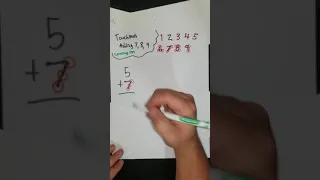 Touchmath
Adding 7, 8, 9
1 2 3 4 5
6 7 8 9
5
+ 7
5
+ 7